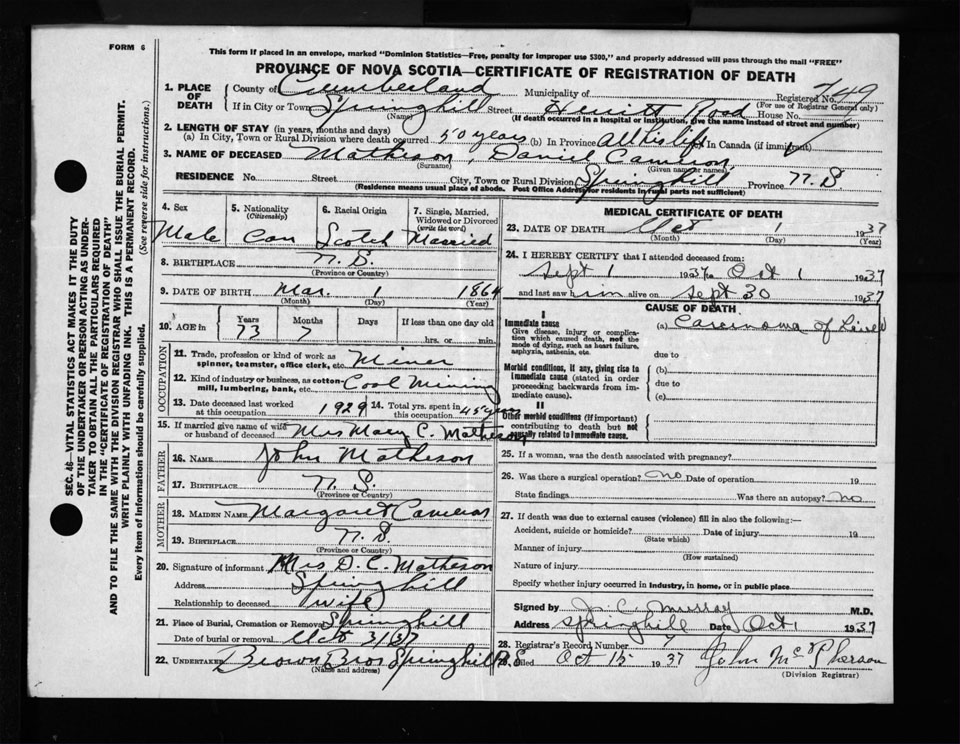 FORM 6
This form if placed in an envelope, marked "Dominion Statistics—Free, penalty for improper use $300," and properly addressed will pass through the mail "FREE"
PROVINCE OF NOVA SCOTIA—CERTIFICATE OF REGISTRATION OF DEATH
SEC. 46—VITAL STATISTICS ACT MAKES IT THE DUTY
OF THE UNDERTAKER OR PERSON ACTING AS UNDER-
TAKER TO OBTAIN ALL THE PARTICULARS REQUIRED
IN THE "CERTIFICATE OF REGISTRATION OF DEATH"
AND TO FILE THE SAME WITH THE DIVISION REGISTRAR WHO SHALL ISSUE THE BURIAL PERMIT.
WRITE PLAINLY WITH UNFADING INK. THIS IS A PERMANENT RECORD.
Every item of information should be carefully supplied. (See reverse side for instructions.)
1. PLACE OF DEATH County of Cumberland Municipality of Registered No. 749
(For use of Registrar General only)
If in City or Town Springhill Street Hewitt Road House No.
(Name) (If death occurred in a hospital or institution, give the name instead of street and number)
2. LENGTH OF STAY (in years, months and days)
(a) In City, Town or Rural Division where death occurred 50 years (b) In Province All his life In Canada (if immigrant)
3. NAME OF DECEASED Matheson, Daniel Cameron
(Surname) (Given name or names)
RESIDENCE No. Street City, Town or Rural Division Springhill Province N. S
(Residence means usual place of abode. Post Office Address for residents in rural parts not sufficient)
4. Sex 5. Nationality (Citizenship) 6. Racial Origin 7. Single, Married, Widowed or Divorced (write the word)
Male Can Scotch Married
8. BIRTHPLACE N. S.
(Province or Country)
9. DATE OF BIRTH Mar. 1 1864
(Month) (Day) (Year)
10. AGE in Years Months Days If less than one day old
73 7 hrs. or min.
OCCUPATION
11. Trade, profession or kind of work as spinner, teamster, office clerk, etc. Miner
12. Kind of industry or business, as cotton-mill, lumbering, bank, etc. Coal Mining
13. Date deceased last worked at this occupation 1929 14. Total yrs. spent in this occupation 45 years
15. If married give name of wife or husband of deceased Mrs Mary C. Matheson
FATHER
16. NAME John Matheson
17. BIRTHPLACE N. S
(Province or Country)
MOTHER
18. MAIDEN NAME Margaret Cameron
19. BIRTHPLACE N. S.
(Province or Country)
20. Signature of informant Mrs D. C. Matheson
Address Springhill
Relationship to deceased wife
21. Place of Burial, Cremation or Removal Springhill
Date of burial or removal Oct 3/37
22. UNDERTAKER Brown Bros Springhill N.S
(Name and address)
MEDICAL CERTIFICATE OF DEATH
23. DATE OF DEATH Oct 1 1937
(Month) (Day) (Year)
24. I HEREBY CERTIFY that I attended deceased from:
Sept 1 1937 to Oct 1 1937
and last saw him alive on Sept 30 1937
CAUSE OF DEATH
I
Immediate cause (a) Carcinoma of Liver
Give disease, injury or complication which caused death, not the mode of dying, such as heart failure, asphyxia, asthenia, etc.
due to
Morbid conditions, if any, giving rise to immediate cause (stated in order proceeding backwards from immediate cause).
(b)
due to
(c)
II
Other morbid conditions (if important) contributing to death but not causally related to immediate cause.
25. If a woman, was the death associated with pregnancy?
26. Was there a surgical operation? no Date of operation 19
State findings Was there an autopsy? no
27. If death was due to external causes (violence) fill in also the following:—
Accident, suicide or homicide? Date of injury 19
(State which)
Manner of injury
(How sustained)
Nature of injury
Specify whether injury occurred in industry, in home, or in public place
Signed by J. C. Murray M.D.
Address Springhill Date Oct 1 1937
28. Registrar's Record Number
29. Filed Oct 15 1937 John McPherson
(Division Registrar)